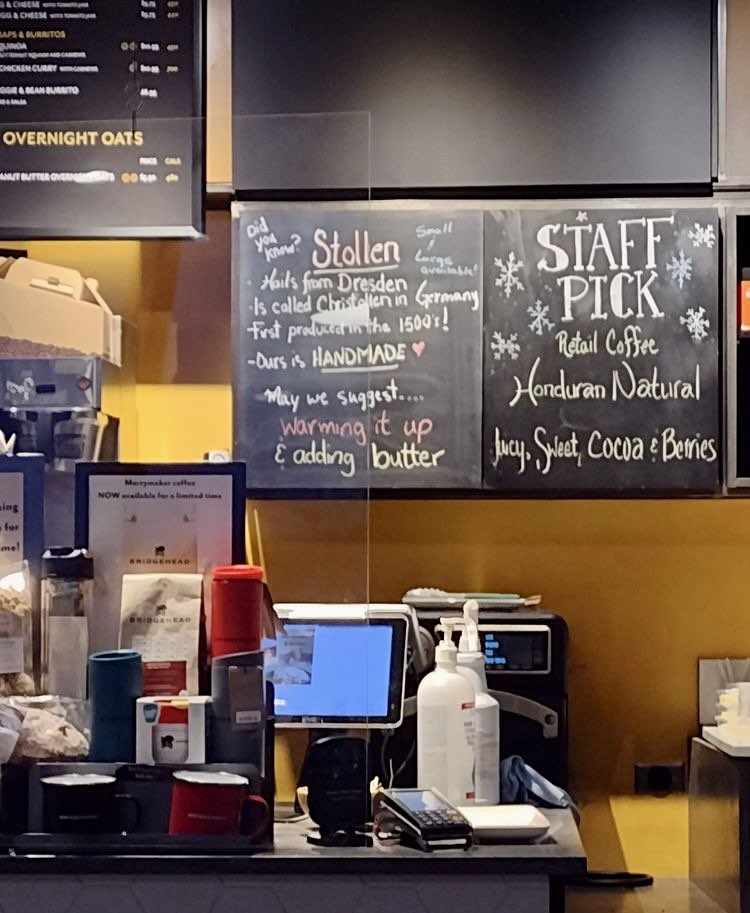 G & CHEESE
GG & CHEESE
APS & BURRITOS
QUINOA
CHICKEN CURRY WITH CASHEWS
GGIE & BEAN BURRITO
OVERNIGHT OATS
PRICE CALS
ANUT BUTTER OVERNIGHT OATS
Did you know?
Stollen
Small & Large available!
- Hails from Dresden
- Is called Christollen in Germany
- First produced in the 1500's!
- Ours is HANDMADE ♥
May we suggest....
Warming it up
& adding butter
STAFF
PICK
Retail Coffee
Honduran Natural
Juicy, Sweet, Cocoa & Berries
Merrymaker coffee
NOW available for a limited time
BRIDGEHEAD
BRIDGEHEAD
ing
e for
me!